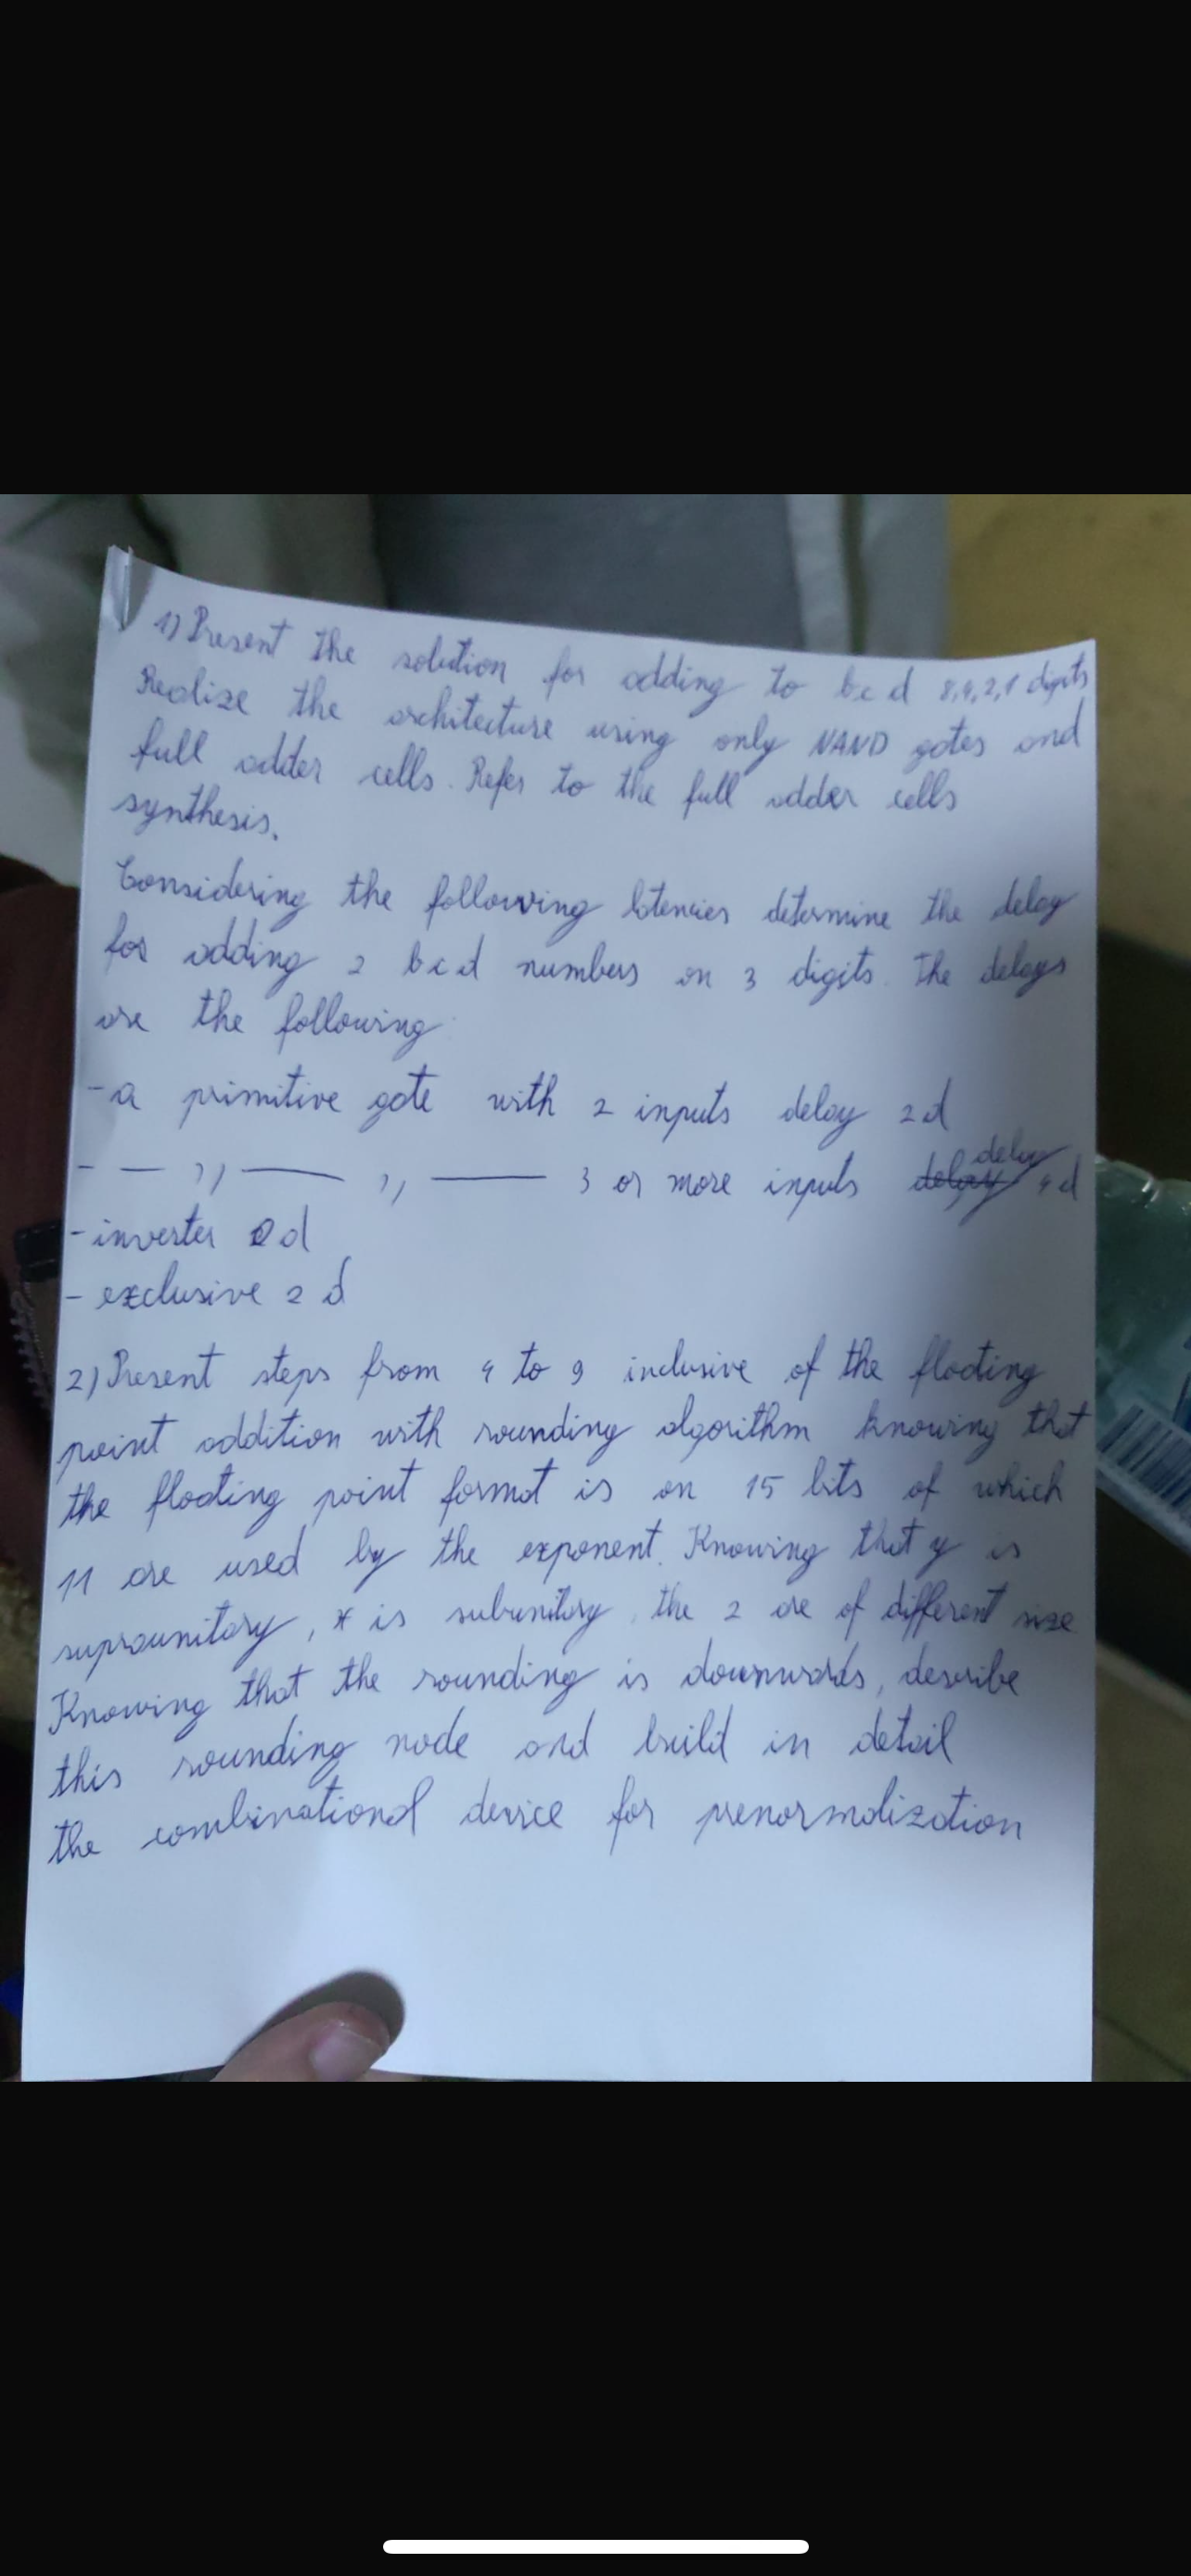 1) Present the solution for adding to bcd 8,4,2,1 digits
Realize the architecture using only NAND gates and
full adder cells. Refer to the full adder cells
synthesis.
Considering the following latencies determine the delay
for adding 2 bcd numbers on 3 digits. The delays
are the following:
- a primitive gate with 2 inputs delay 2d
- — ,, — ,, — 3 or more inputs delay 4d
- inverter 0d
- exclusive 2d
2) Present steps from 4 to 9 inclusive of the floating
point addition with rounding algorithm knowing that
the floating point format is on 15 bits of which
11 are used by the exponent. Knowing that y is
supraunitary, x is subunitary, the 2 are of different size
Knowing that the rounding is downwards, describe
this rounding mode and build in detail
the combinational device for prenormalization